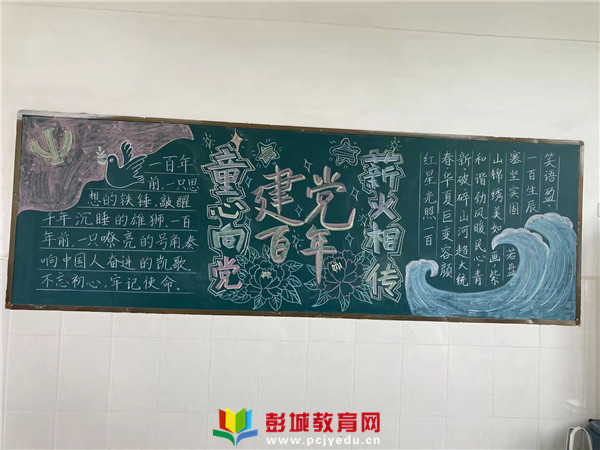 一百年
前,一只思
想的铁锤,敲醒
千年沉睡的雄狮.一百
年前,一只嘹亮的号角奏
响中国人奋进的凯歌.
不忘初心,牢记使命.
童心向党
建党
百年
薪火相传
笑语盈
一百生辰
寨坚实固
山锦绣美如画紫
和谐劲风暖民心青
新破碎山河超大统
春华夏巨变容颜
红星光照一百
彭城教育网
www.pcjyedu.cn